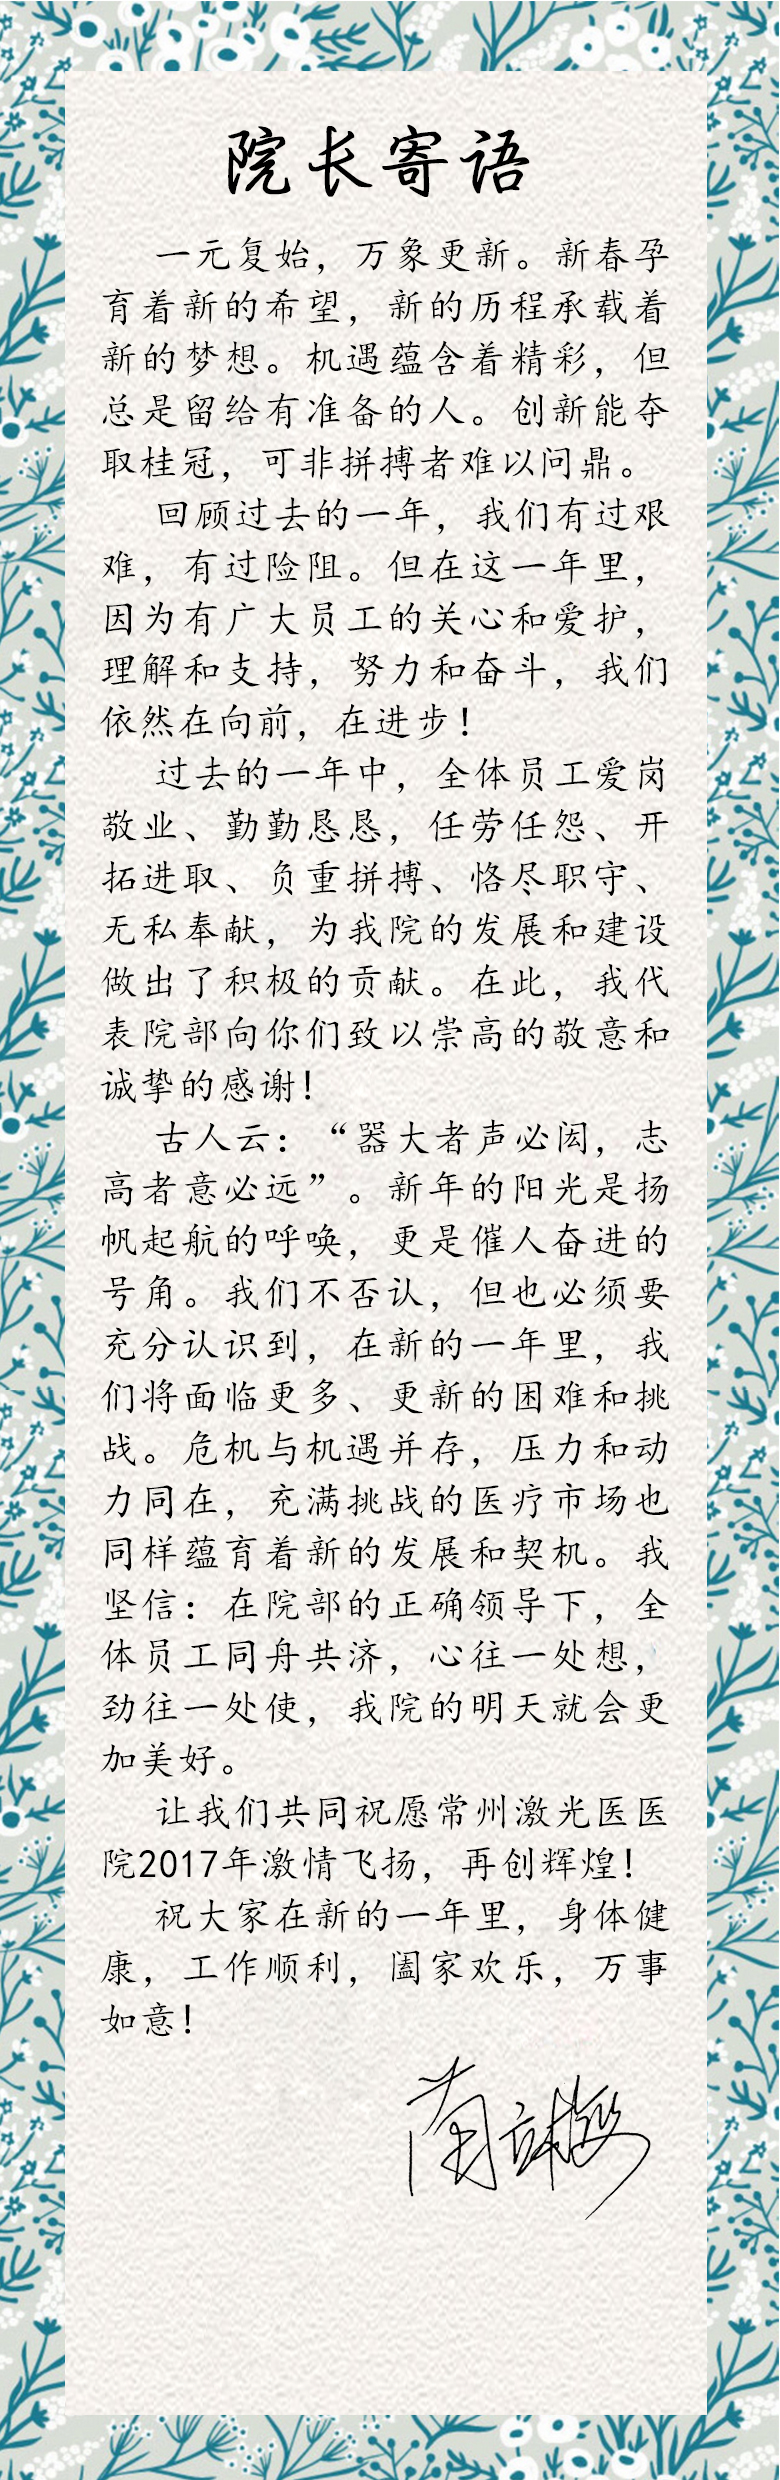 院长寄语
一元复始，万象更新。新春孕
育着新的希望，新的历程承载着
新的梦想。机遇蕴含着精彩，但
总是留给有准备的人。创新能夺
取桂冠，可非拼搏者难以问鼎。
回顾过去的一年，我们有过艰
难，有过险阻。但在这一年里，
因为有广大员工的关心和爱护，
理解和支持，努力和奋斗，我们
依然在向前，在进步！
过去的一年中，全体员工爱岗
敬业、勤勤恳恳，任劳任怨、开
拓进取、负重拼搏、恪尽职守、
无私奉献，为我院的发展和建设
做出了积极的贡献。在此，我代
表院部向你们致以崇高的敬意和
诚挚的感谢！
古人云：“器大者声必闳，志
高者意必远”。新年的阳光是扬
帆起航的呼唤，更是催人奋进的
号角。我们不否认，但也必须要
充分认识到，在新的一年里，我
们将面临更多、更新的困难和挑
战。危机与机遇并存，压力和动
力同在，充满挑战的医疗市场也
同样蕴育着新的发展和契机。我
坚信：在院部的正确领导下，全
体员工同舟共济，心往一处想，
劲往一处使，我院的明天就会更
加美好。
让我们共同祝愿常州激光医医
院2017年激情飞扬，再创辉煌！
祝大家在新的一年里，身体健
康，工作顺利，阖家欢乐，万事
如意！